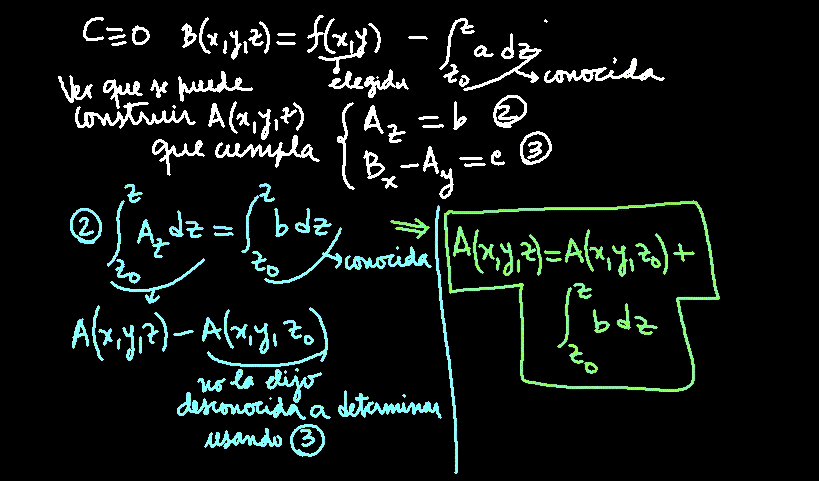 C≡0 B(x,y,z) = f(x,y) − ∫_{z₀}^{z} a dz
elegida → conocida
Ver que se puede
construir A(x,y,z)
que cumpla { A_z = b ②
B_x − A_y = c ③
② ∫_{z₀}^{z} A_z dz = ∫_{z₀}^{z} b dz ⇒
→ conocida
A(x,y,z) − A(x,y,z₀)
no la dijo
desconocida a determinar
usando ③
A(x,y,z) = A(x,y,z₀) +
∫_{z₀}^{z} b dz